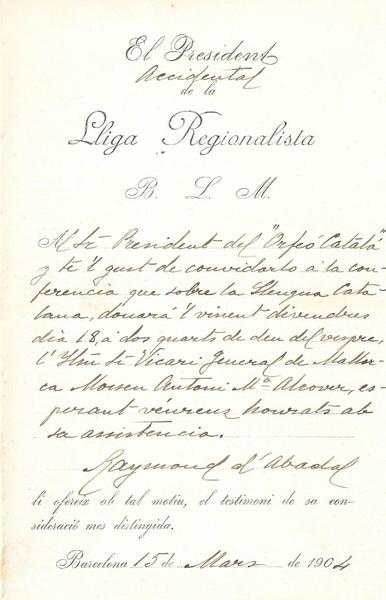 El President
Accidental
de la
Lliga Regionalista
B. L. M.
Al Sr President del "Orfeó Catalá"
y té 'l gust de convidarlo á la con-
ferencia que sobre la Llengua Cata-
lana, donará 'l vinent divendres
dia 18, á dos quarts de deu del vespre,
l'Ilm Sr Vicari General de Mallor-
ca Mossen Antoni Mª Alcover, es-
perant véurens honrats ab
sa assistencia.
Raymond d'Abadal
li ofereix ab tal motiu, el testimoni de sa con-
sideració mes distingida.
Barcelona 15 de Mars de 1904